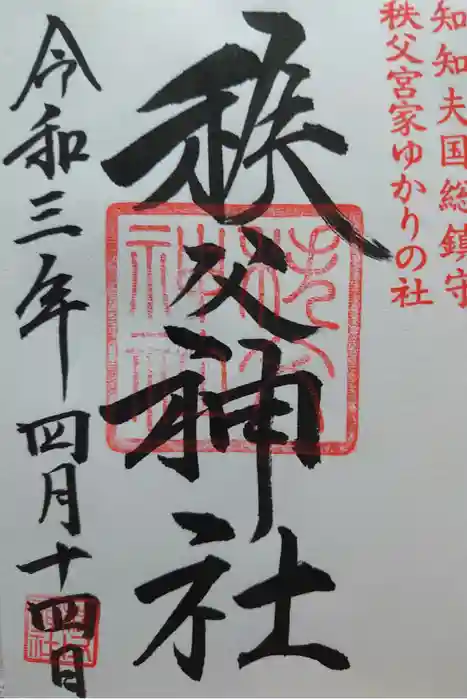 知知夫国総鎮守
秩父宮家ゆかりの社
秩父神社
令和三年四月十四日
秩父神社